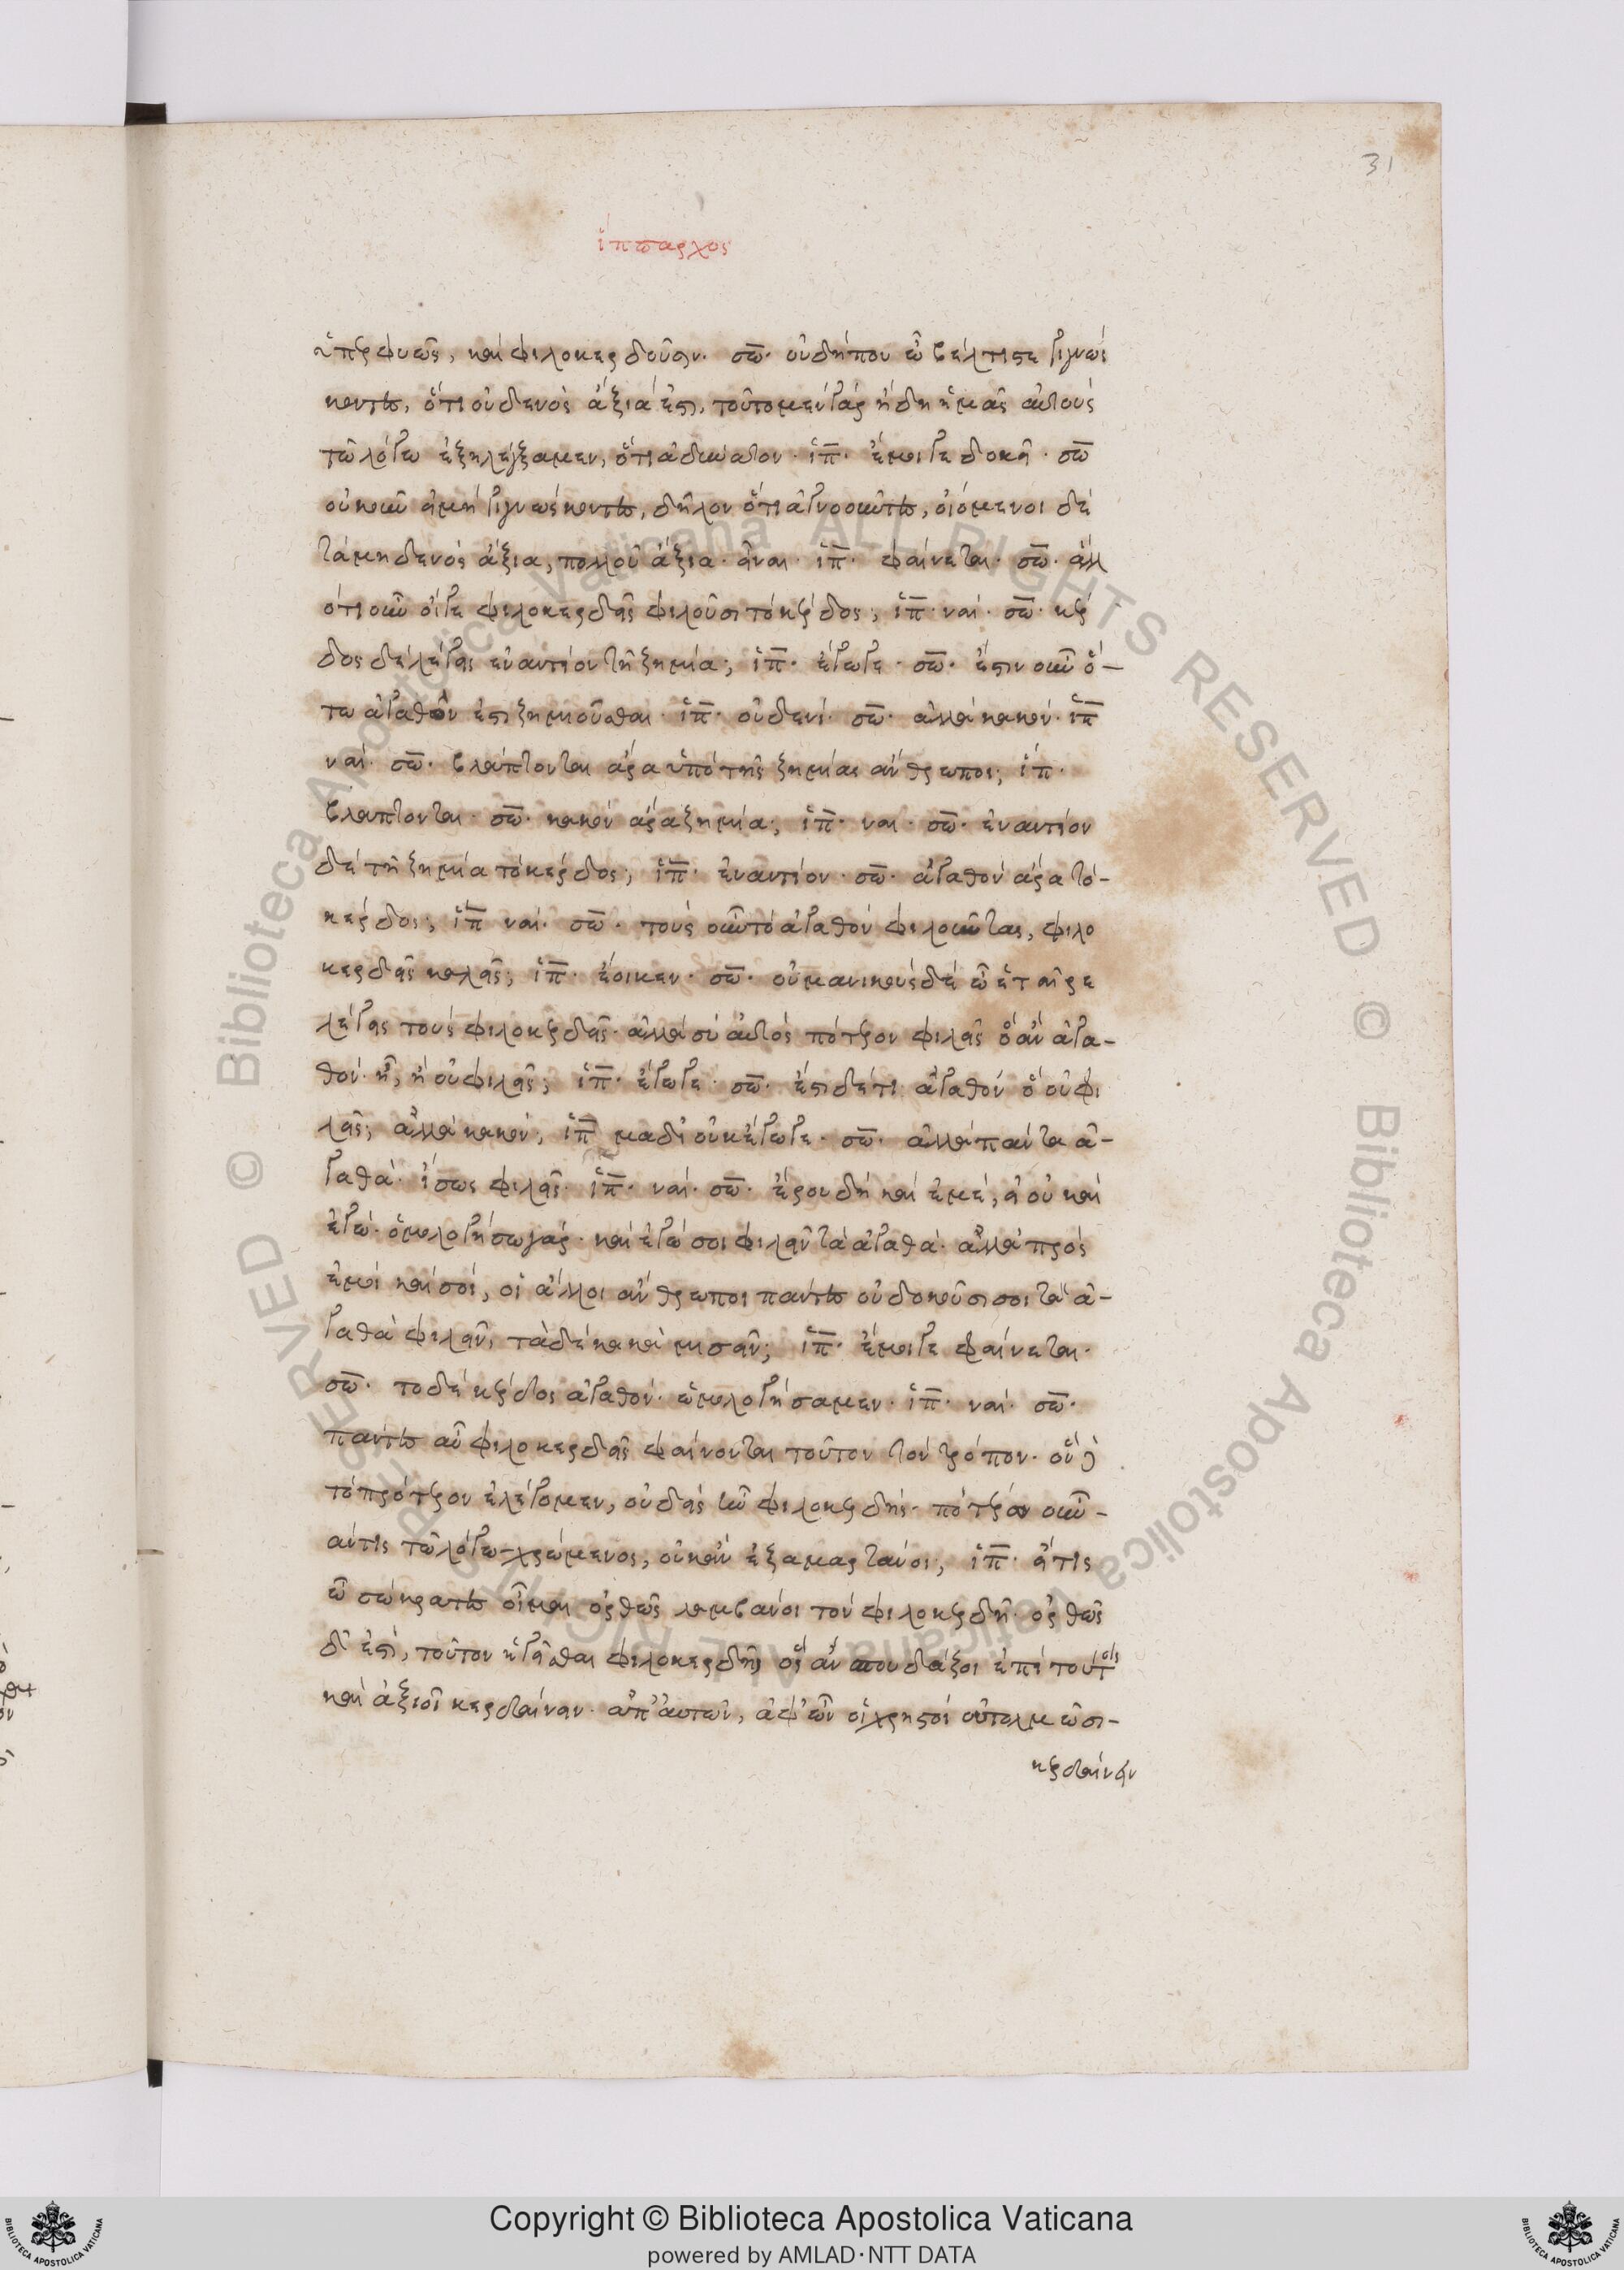 31
ἵππαρχος
ὑπερφυῶς, καὶ φιλοκερδοῦσιν. σω. οὐ δήπου ὦ βέλτιστε γιγνώς
κοντες, ὅτι οὐδενὸς ἄξιά ἐστι, τοῦτο μὲν γὰρ ἤδη ἡμᾶς αὐτοὺς
τῶ λόγω ἐξηλέγξαμεν, ὅτι ἀδύνατον. ἱπ. ἔμοιγε δοκεῖ. σω
οὐκοῦν εἰ μὴ γιγνώσκοντες, δῆλον ὅτι ἀγνοοῦντες, οἰόμενοι δὲ
τὰ μηδενὸς ἄξια, πολλοῦ ἄξια εἶναι. ἱπ. φαίνεται. σω. ἄλλ
ὅτι οὖν οἵγε φιλοκερδεῖς φιλοῦσι τὸ κέρδος; ἱπ. ναί. σω. κέρ
δος δὲ λέγεις ἐναντίον τῆ ζημία; ἱπ. ἔγωγε. σω. ἔστιν οὖν ὅ-
τω ἀγαθόν ἐστι ζημιοῦσθαι. ἱπ. οὐδενί. σω. ἀλλὰ κακόν. ἱπ
ναί. σω. βλάπτονται ἄρα ὑπὸ τῆς ζημίας ἄνθρωποι; ἱπ.
βλάπτονται. σω. κακὸν ἄρα ζημία; ἱπ. ναι. σω. ἐναντίον
δὲ τῆ ζημία τὸ κέρδος; ἱπ. ἐναντίον. σω. ἀγαθὸν ἄρα τὸ-
κέρδος; ἱπ ναί. σω. τοὺς οὖν τὸ ἀγαθὸν φιλοῦντας, φιλο
κερδεῖς καλεῖς; ἱπ. ἔοικεν. σω. οὐ μανικοὺς δὲ ὦ ἑταῖρε
λέγεις τοὺς φιλοκερδεῖς. ἀλλὰ σὺ αὐτὸς πότερον φιλεῖς ὃ ἂν ἀγα-
θὸν ἦ, ἢ οὐ φιλεῖς; ἱπ. ἔγωγε. σω. ἔστι δέ τι ἀγαθὸν ὃ οὐ φι
λεῖς; ἀλλὰ κακόν; ἱπ μα δί οὐκ ἔγωγε. σω. ἀλλὰ πάντα ἀ-
γαθὰ ἴσως φιλεῖς. ἱπ. ναί. σω. ἔρου δὴ καὶ ἐμὲ, εἰ οὐ καὶ
ἐγώ. ὁμολογήσω γάρ. καὶ ἐγώ σοι φιλεῖν τὰ ἀγαθά. ἀλλὰ πρὸς
ἐμοὶ καὶ σοὶ, οἱ ἄλλοι ἄνθρωποι πάντες οὐ δοκοῦσι σοι τὰ ἀ-
γαθὰ φιλεῖν, τὰ δὲ κακὰ μισεῖν; ἱπ. ἔμοιγε φαίνεται.
σω. το δὲ κέρδος ἀγαθόν. ὡμολογήσαμεν. ἱπ. ναί. σω.
πάντες αὖ φιλοκερδεῖς φαίνονται τοῦτον τὸν τρόπον. ὃν δὲ
τὸ πρότερον ἐλέγομεν, οὐδεὶς ἦν φιλοκερδής. πότερον οὖν-
ἄν τις τῶ λόγω χρώμενος, οὐκ ἂν ἐξαμαρτάνοι; ἱπ. εἴ τις
ὦ σώκρατες οἶμαι ὀρθῶς λαμβάνοι τὸν φιλοκερδῆ. ὀρθῶς
δ' ἐστὶ, τοῦτον ἡγεῖσθαι φιλοκερδῆ, ὃς ἂν σπουδάζοι ἐπὶ τούτοις
καὶ ἀξιοῖ κερδαίνειν ἀπ' αυτῶν, ἀφ' ὧν οἱ χρηστοὶ οὐ τολμῶσι-
κερδαίνειν